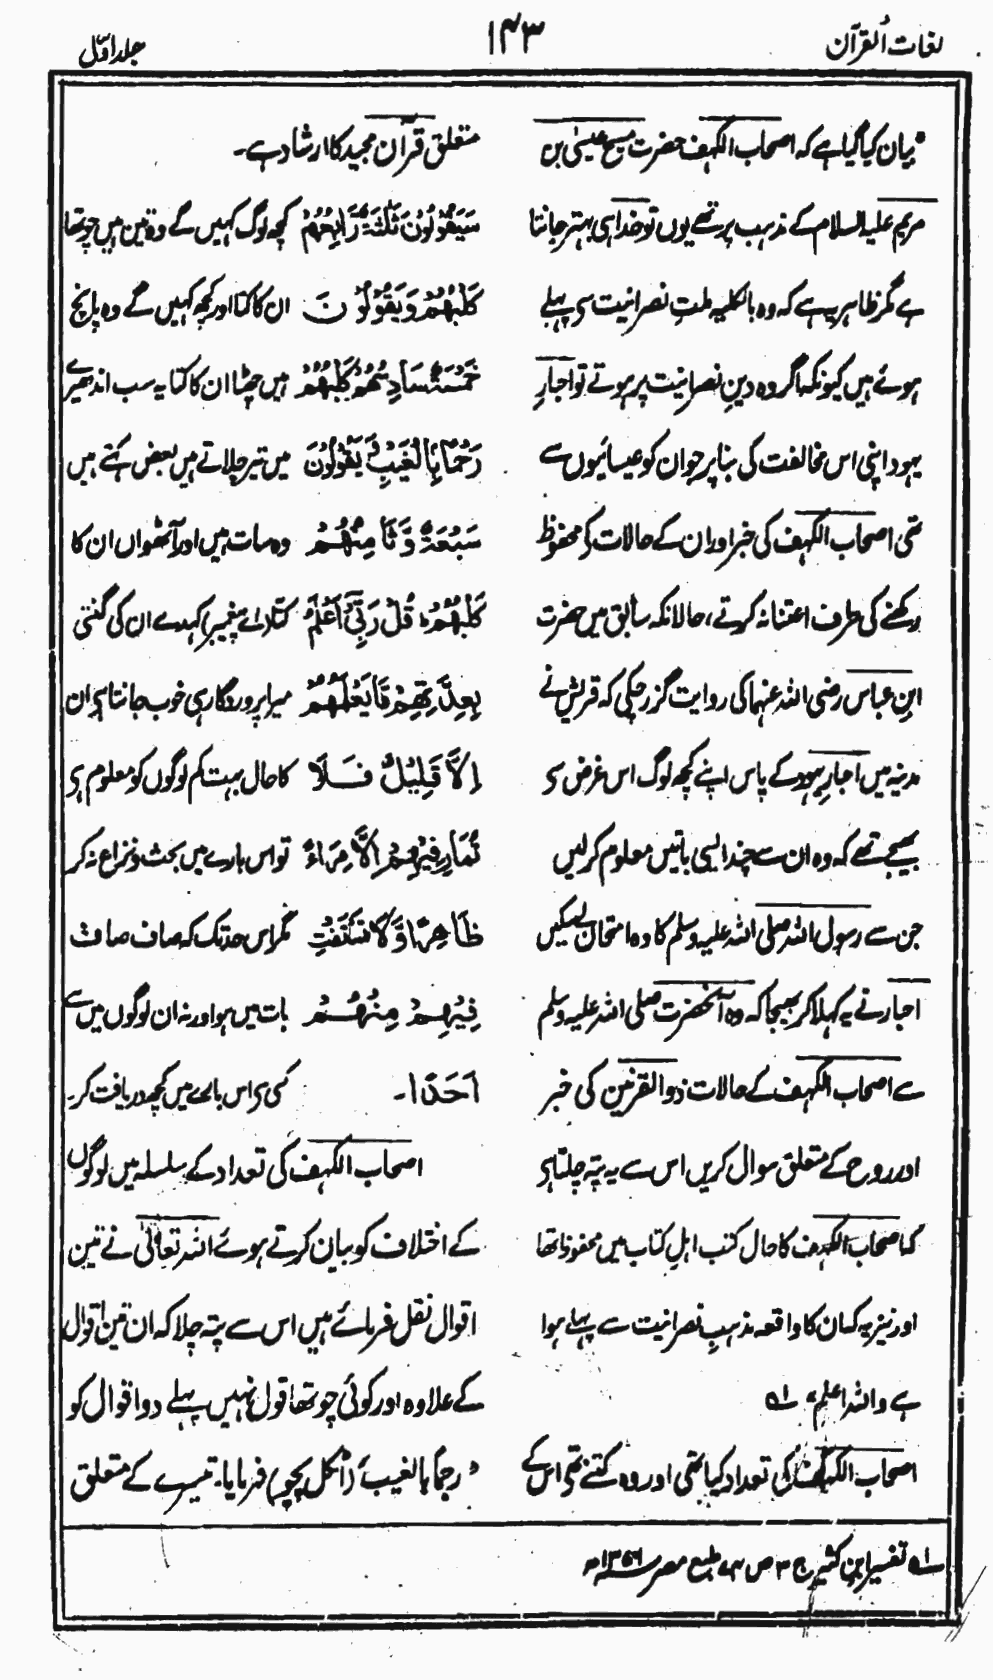 لغات القرآن
۱۴۳
جلد اوّل
بیان کیا گیا ہے کہ اصحاب الکہف حضرت مسیح عیسیٰ بن
مریم علیہ السلام کے مذہب پر تھے یوں تو خدا ہی بہتر جانتا
ہے مگر ظاہر یہ ہے کہ وہ بالکلیہ ملتِ نصرانیت سے پہلے
ہوئے ہیں کیونکہ اگر وہ دینِ نصرانیت پر ہوتے تو احبارِ
یہود اپنی اس مخالفت کی بنا پر جو ان کو عیسائیوں سے
تھی اصحاب الکہف کی خبر اور ان کے حالات کو محفوظ
رکھنے کی طرف اعتنا نہ کرتے، حالانکہ سابق میں حضرت
ابن عباس رضی اللہ عنہما کی روایت گزر چکی کہ قریش نے
مدینہ میں احبارِ یہود کے پاس اپنے کچھ لوگ اس غرض سے
بھیجے تھے کہ وہ ان سے چند ایسی باتیں معلوم کر لیں
جن سے رسول اللہ صلی اللہ علیہ وسلم کا وہ امتحان لے سکیں
احبار نے یہ کہلا کر بھیجا کہ وہ آنحضرت صلی اللہ علیہ وسلم
سے اصحاب الکہف کے حالات ذوالقرنین کی خبر
اور روح کے متعلق سوال کریں اس سے یہ پتہ چلتا ہے
کہ اصحاب الکہف کا حال کتب اہلِ کتاب میں محفوظ تھا
اور نیز یہ کہ ان کا واقعہ مذہبِ نصرانیت سے پہلے ہوا
ہے واللہ اعلم، لہ
اصحاب الکہف کی تعداد کیا تھی اور وہ کتنے تھے اس کے
متعلق قرآن مجید کا ارشاد ہے۔
سَيَقُوْلُوْنَ ثَلٰثَةٌ رَّابِعُهُمْ کچھ لوگ کہیں گے وہ تین ہیں چوتھا
كَلْبُهُمْ وَيَقُوْلُوْنَ ان کا کتا اور کچھ کہیں گے وہ پانچ
خَمْسَةٌ سَادِسُهُمْ كَلْبُهُمْ ہیں چھٹا ان کا کتا یہ سب اندھیرے
رَجْمًۢا بِالْغَيْبِ وَيَقُوْلُوْنَ میں تیر چلاتے ہیں بعض کہتے ہیں
سَبْعَةٌ وَّثَامِنُهُمْ وہ سات ہیں اور آٹھواں ان کا
كَلْبُهُمْ قُلْ رَّبِّيْٓ اَعْلَمُ کتا، (اے پیغمبر) کہدے ان کی گنتی
بِعِدَّتِهِمْ مَّا يَعْلَمُهُمْ میرا پروردگار ہی خوب جانتا ہے ان
اِلَّا قَلِيْلٌ فَلَا کا حال بہت کم لوگوں کو معلوم ہے
تُمَارِ فِيْهِمْ اِلَّا مِرَآءً تو اس بارے میں بحث و نزاع نہ کر
ظَاهِرًا وَّلَا تَسْتَفْتِ مگر اس حد تک کہ صاف صاف
فِيْهِمْ مِّنْهُمْ بات میں ہو اور نہ ان لوگوں میں سے
اَحَدًا۔ کسی سے اس بارے میں کچھ دریافت کر۔
اصحاب الکہف کی تعداد کے سلسلہ میں لوگوں
کے اختلاف کو بیان کرتے ہوئے اللہ تعالیٰ نے تین
اقوال نقل فرمائے ہیں اس سے پتہ چلا کہ ان تین اقوال
کے علاوہ اور کوئی چوتھا قول نہیں پہلے دو اقوال کو
"رجمًا بالغیب" (اٹکل پچو) فرمایا۔ تیسرے کے متعلق
لہ تفسیر ابن کثیر ج ۳ ص ۷۴ طبع مصر ۱۳۵۶ھ